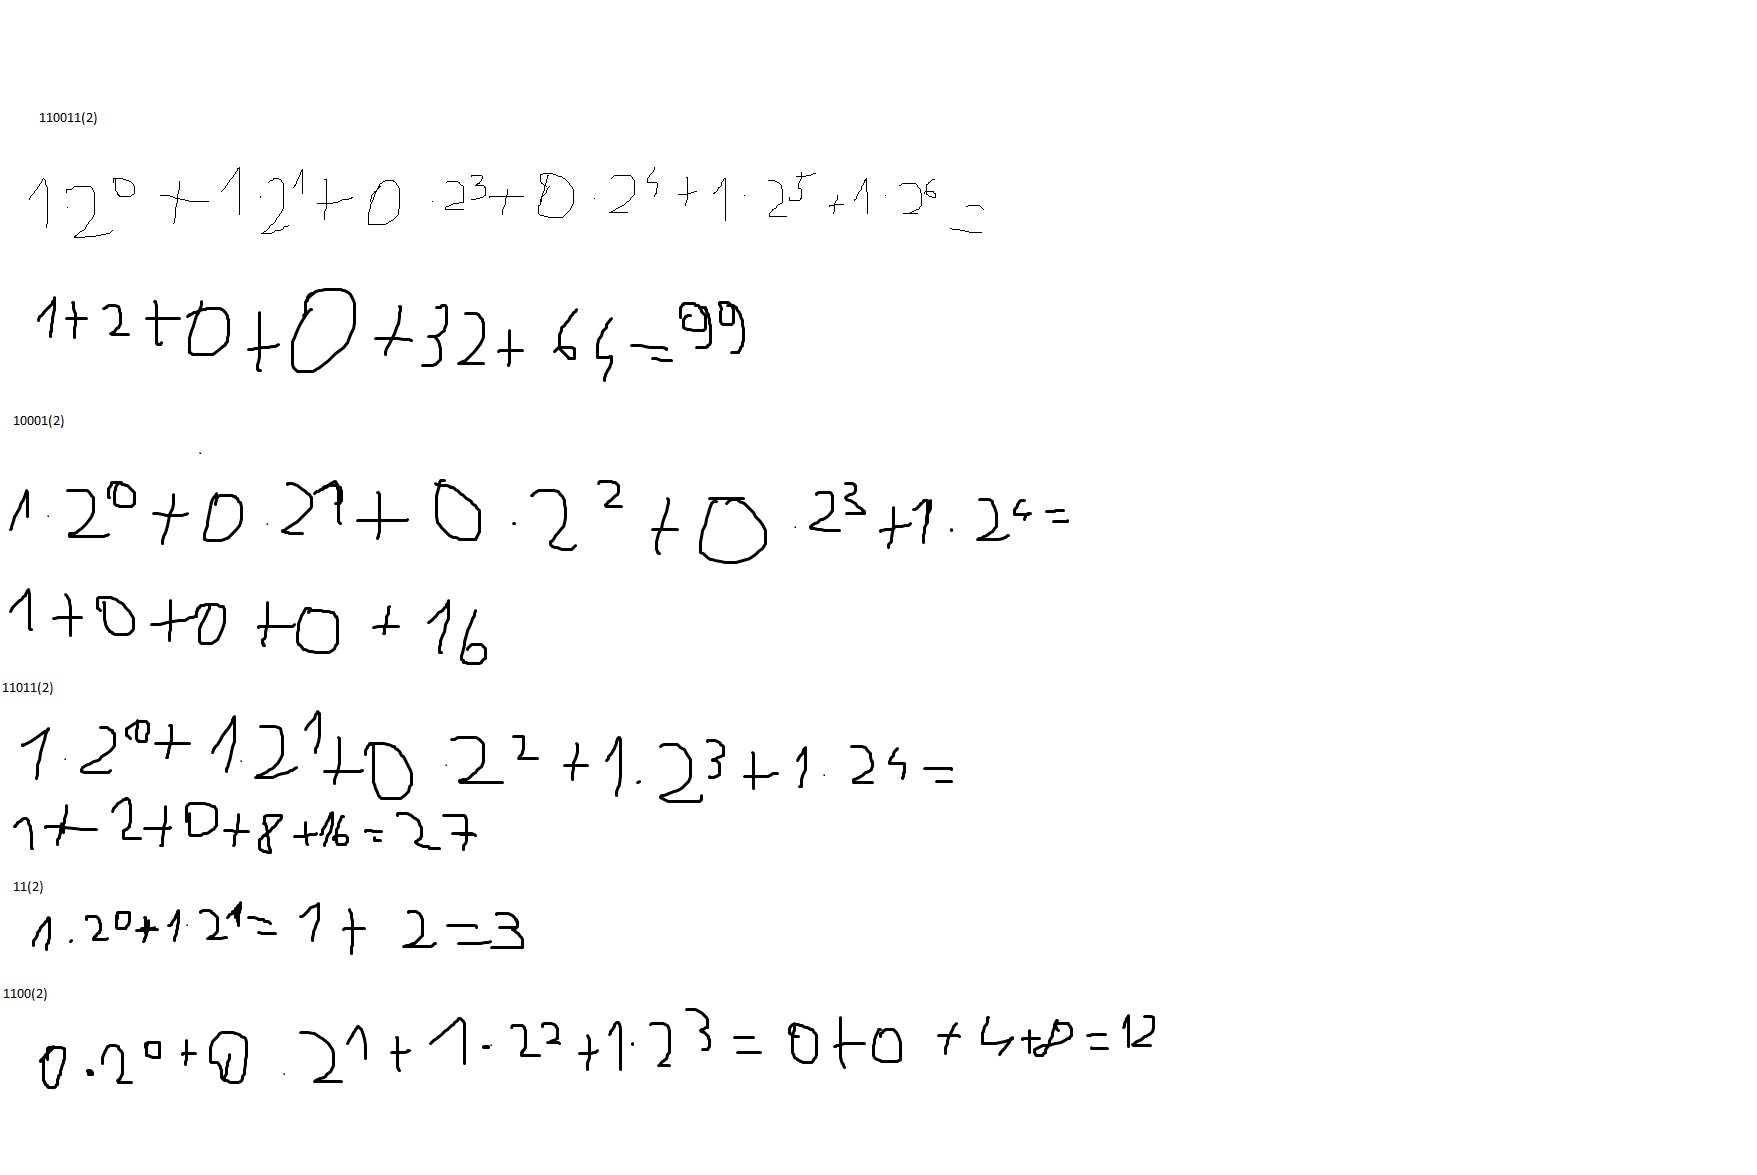 110011(2)
1·2⁰+1·2¹+0·2³+0·2⁴+1·2⁵+1·2⁶=
1+2+0+0+32+64=99
10001(2)
1·2⁰+0·2¹+0·2²+0·2³+1·2⁴=
1+0+0+0+16
11011(2)
1·2⁰+1·2¹+0·2²+1·2³+1·2⁴=
1+2+0+8+16=27
11(2)
1·2⁰+1·2¹=1+2=3
1100(2)
0·2⁰+0·2¹+1·2²+1·2³=0+0+4+8=12